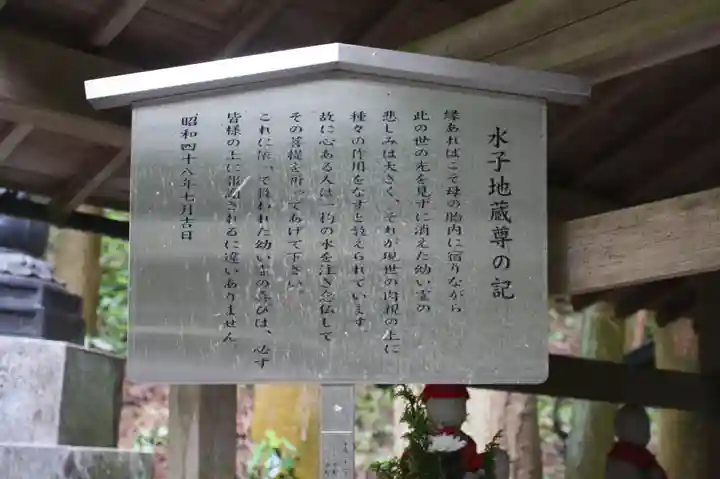 水子地蔵尊の記
縁あればこそ母の胎内に宿りながら
此の世の光を見ずに消えた幼い霊の
悲しみは大きく、それが現世の肉親の上に
種々の作用をなすと教えられています。
故に心ある人は一杓の水を注ぎ念仏して
その菩提を祈ってあげて下さい。
これに依って救われた幼い霊の喜びは、必ず
皆様の上に報恩されるに違いありません。
昭和四十八年七月吉日